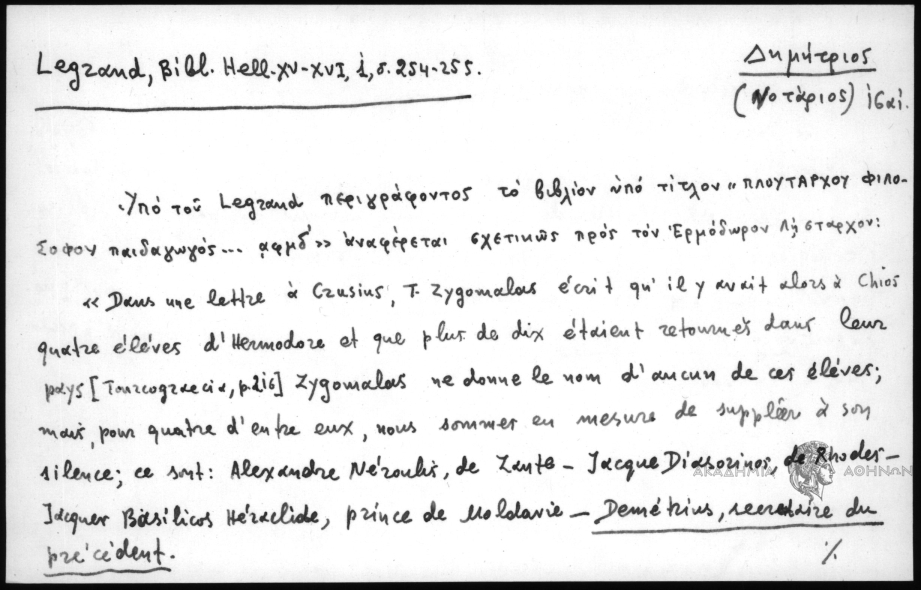 Legrand, Bibl. Hell. XV-XVI, 1, σ. 254-255.
Δημήτριος
(Νοτάριος)
Ὑπό τοῦ Legrand περιγράφοντος τό βιβλίον ὑπό τίτλον « ΠΛΟΥΤΑΡΧΟΥ ΦΙΛΟ-
ΣΟΦΟΥ παιδαγωγός... ͵αφμδ´» ἀναφέρεται σχετικῶς πρός τόν Ἑρμόδωρον Λήσταρχον:
« Dans une lettre à Crusius, T. Zygomalas écrit qu'il y avait alors à Chios
quatre éléves d'Hermodore et que plus de dix étaient retournés dans leur
pays [Tourcograecia, p. 216] Zygomalas ne donne le nom d'aucun de ces éléves;
mais, pour quatre d'entre eux, nous sommes en mesure de suppléer à son
silence; ce sont: Alexandre Néroulis, de Zante - Jacque Diasorinos, de Rhodes -
Jacques Basilicos Héraclide, prince de Moldavie - Demétrius, secretaire du
précédent.
%
ΑΚΑΔΗΜΙΑ ΑΘΗΝΩΝ